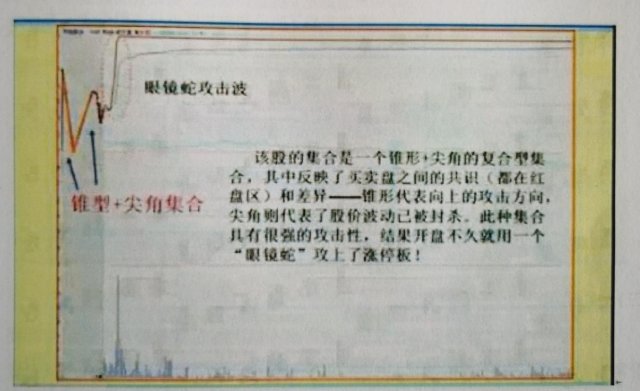 眼镜蛇攻击波
该股的集合是一个锥形+尖角的复合型集
合，其中反映了买卖盘之间的共识（都在红
盘区）和差异——锥形代表向上的攻击方向，
尖角则代表了股价波动已被封杀。此种集合
具有很强的攻击性，结果开盘不久就用一个
“眼镜蛇”攻上了涨停板！
锥型+尖角集合